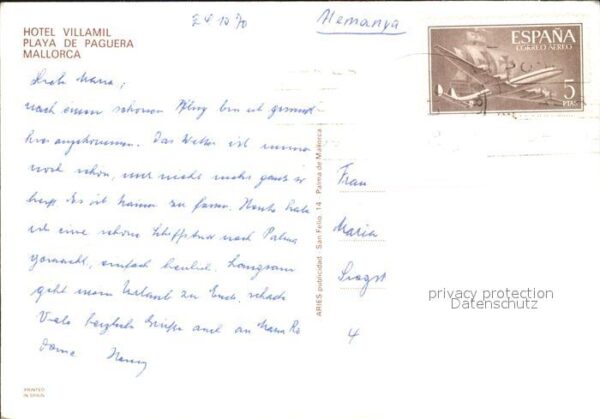 HOTEL VILLAMIL
PLAYA DE PAGUERA
MALLORCA
24 10 70
Alemanya
ESPAÑA
CORREO AEREO
5
PTAS
Maria,
nach einem schönen Flug bin ich gesund
hier angekommen. Das Wetter ist immer
noch schön, nur nicht mehr ganz so
Heute habe
ich eine schöne nach Palma
gemacht, einfach herrlich. Langsam
geht mein Urlaub zu Ende, schade
Viele herzliche Grüße auch an
ARIES publicidad - San Felio, 14 - Palma de Mallorca
Frau
Maria
4
privacy protection
Datenschutz
PRINTED
IN SPAIN